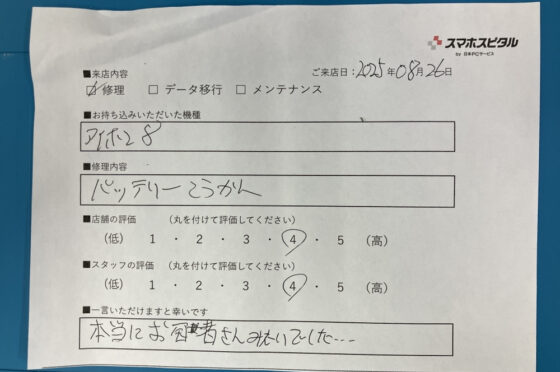 スマホスピタル
by 日本PCサービス
■来店内容
ご来店日：2025年08月26日
☑修理 □ データ移行 □ メンテナンス
■お持ち込みいただいた機種
アイホン8
■修理内容
バッテリーこうかん
■店舗の評価 （丸を付けて評価してください）
（低） 1 ・ 2 ・ 3 ・ 4 ・ 5 （高）
■スタッフの評価 （丸を付けて評価してください）
（低） 1 ・ 2 ・ 3 ・ 4 ・ 5 （高）
■一言いただけますと幸いです
本当にお医者さんみたいでした...